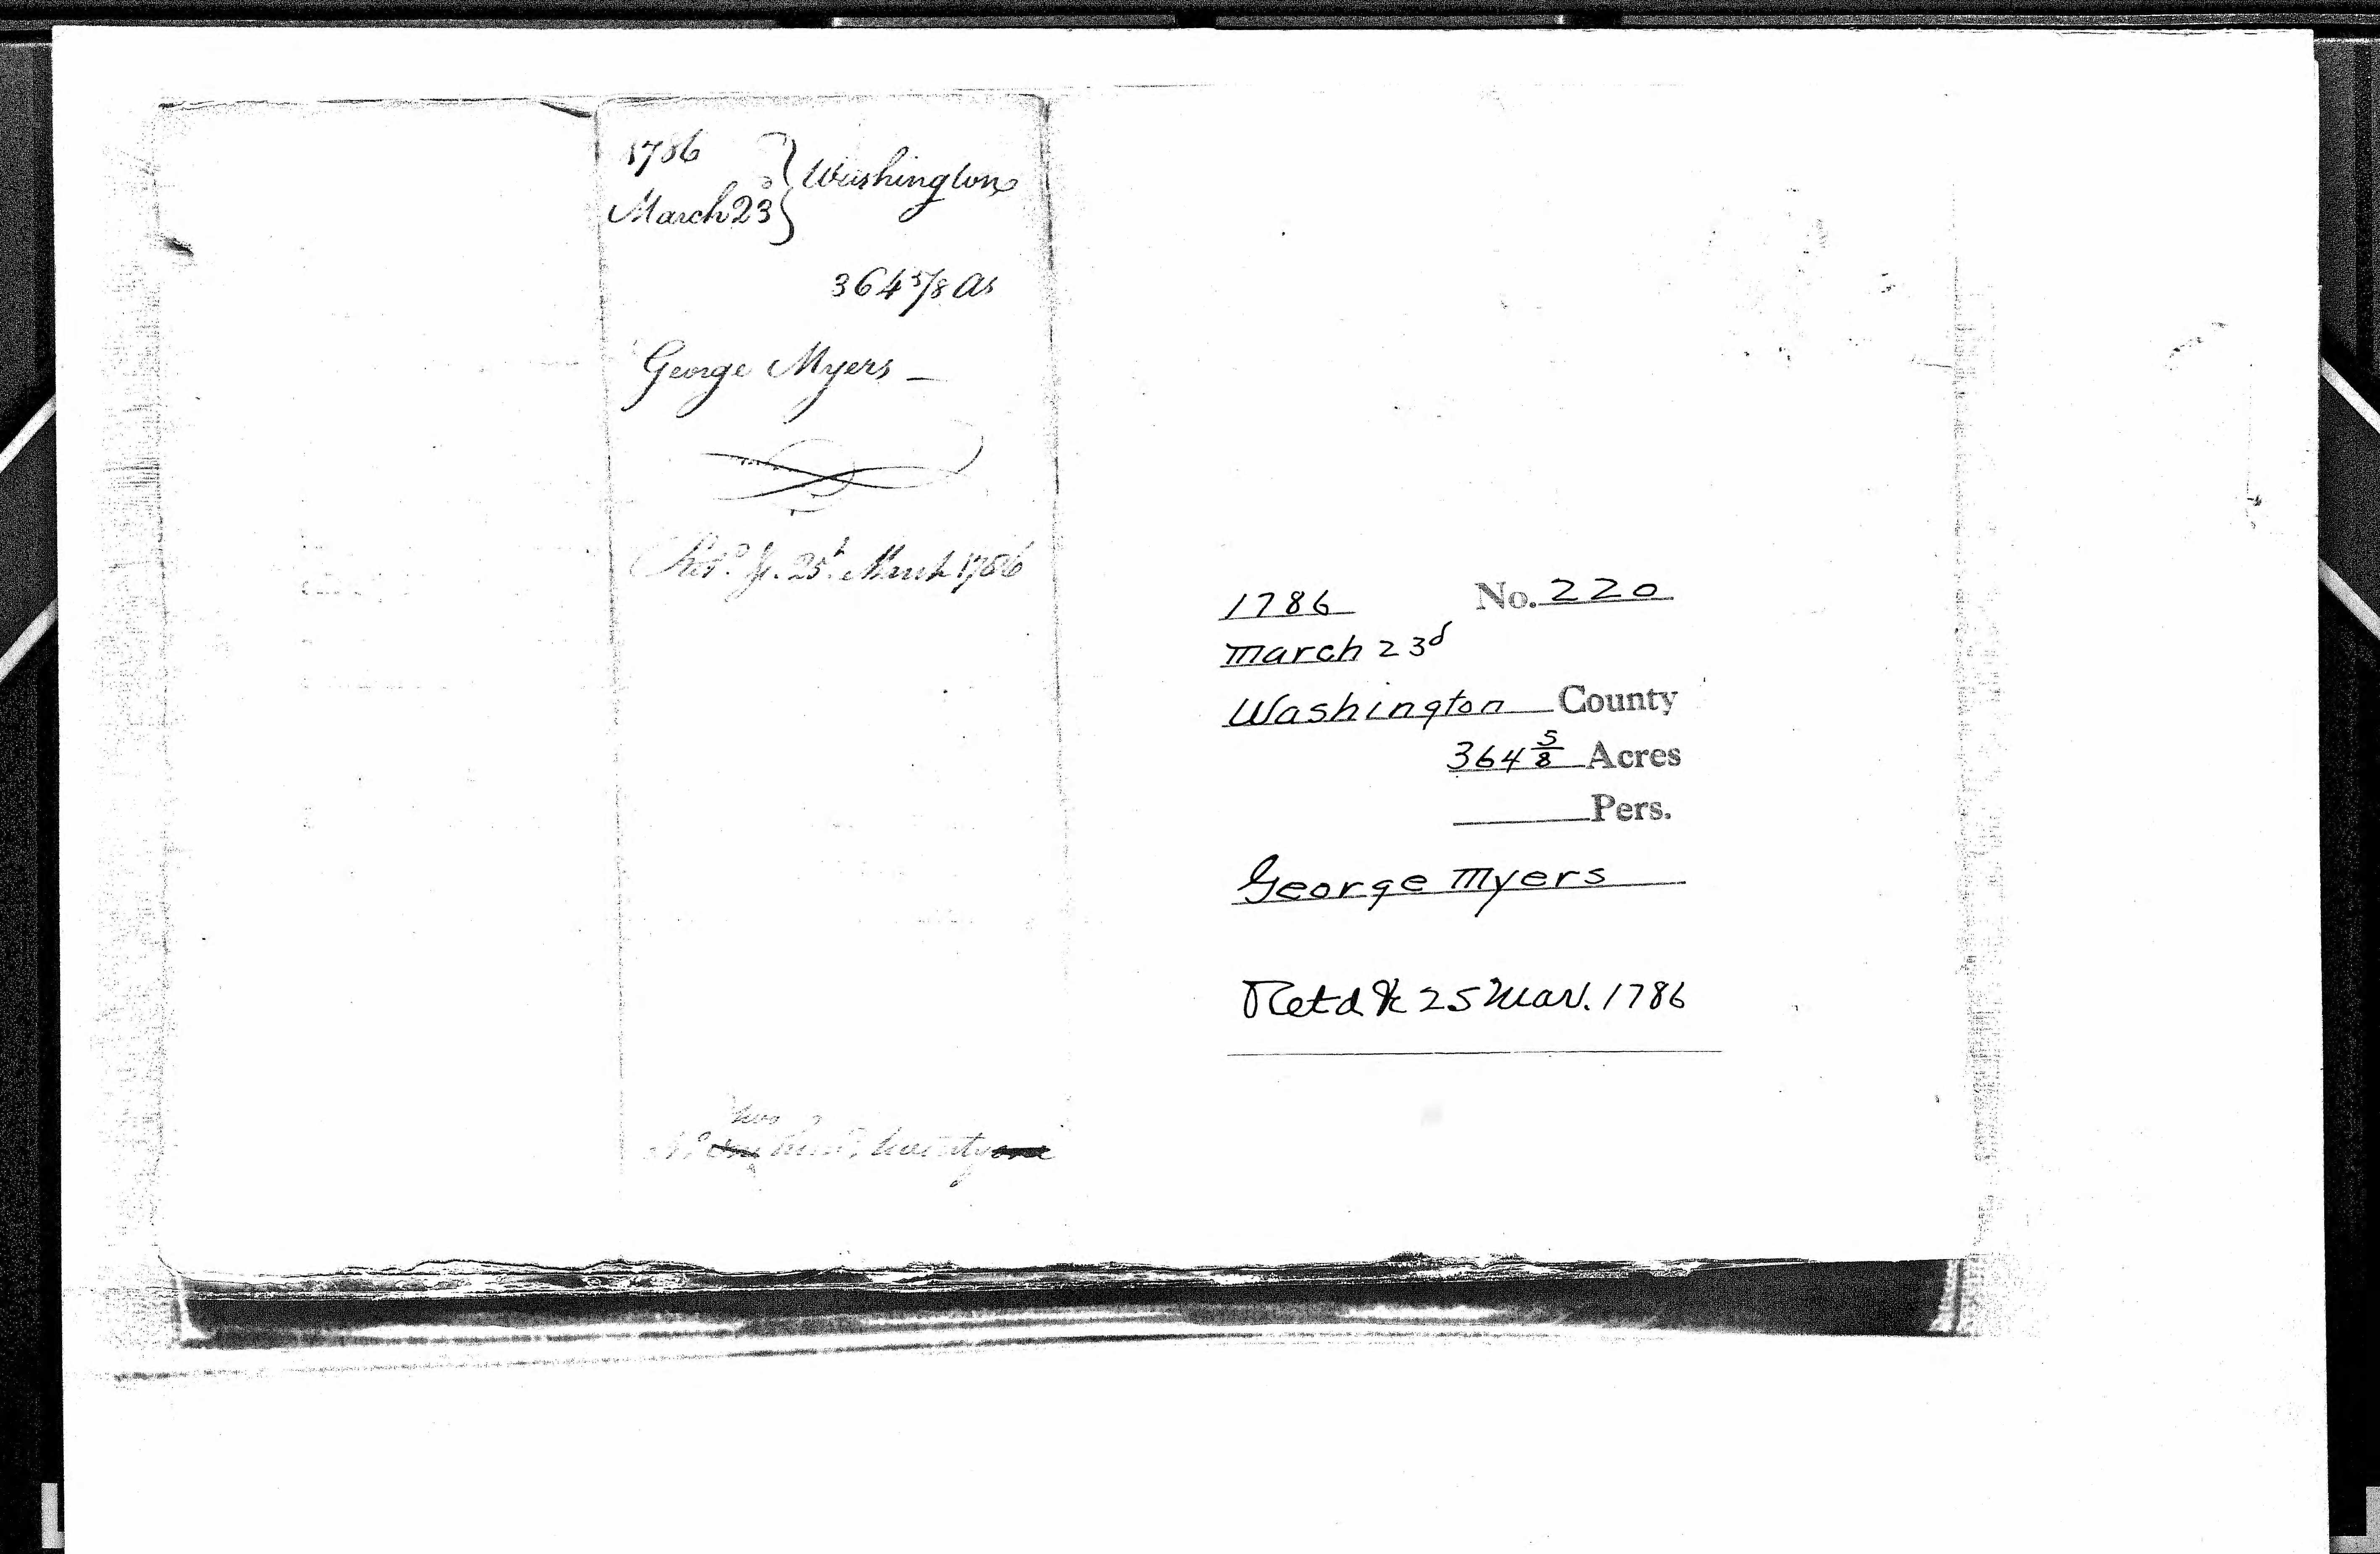 1786
March 23 } Washington
364 5/8 As
George Myers —
Ret.d &c. 25.h March 1786
two
No. one hund.d twenty one
1786 No. 220
March 23d
Washington County
364 5/8 Acres
Pers.
George Myers
Retd &c 25 Mar. 1786